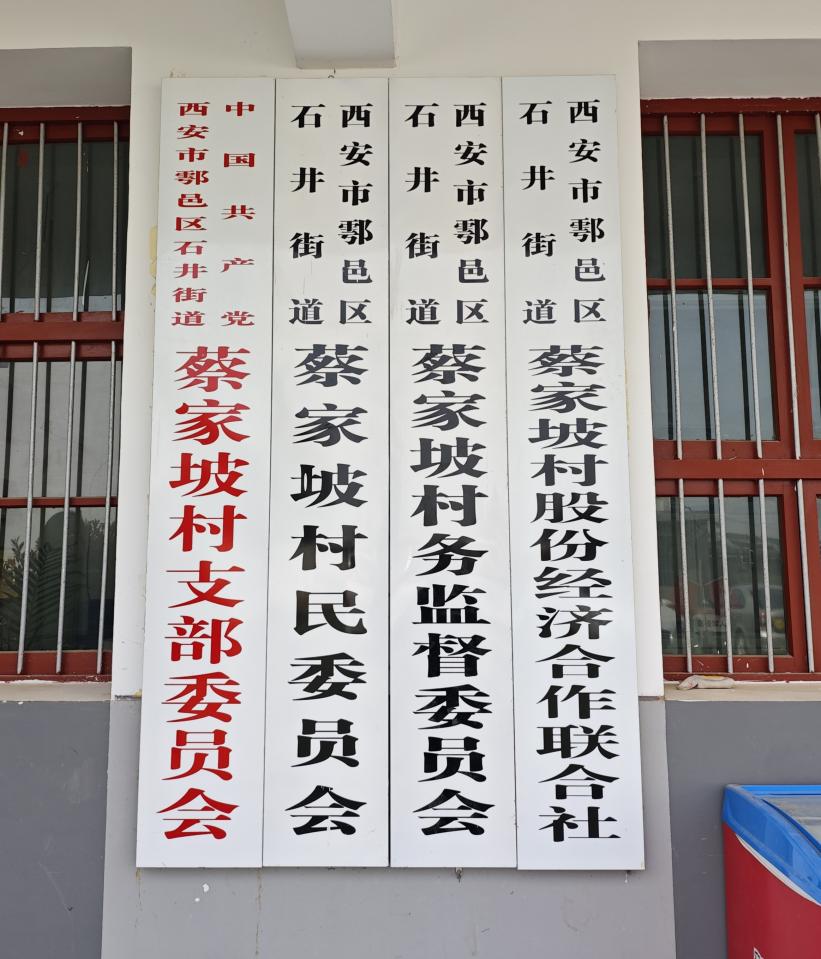 中国共产党
西安市鄠邑区石井街道
蔡家坡村支部委员会
西安市鄠邑区
石井街道
蔡家坡村民委员会
西安市鄠邑区
石井街道
蔡家坡村务监督委员会
西安市鄠邑区
石井街道
蔡家坡村股份经济合作联合社